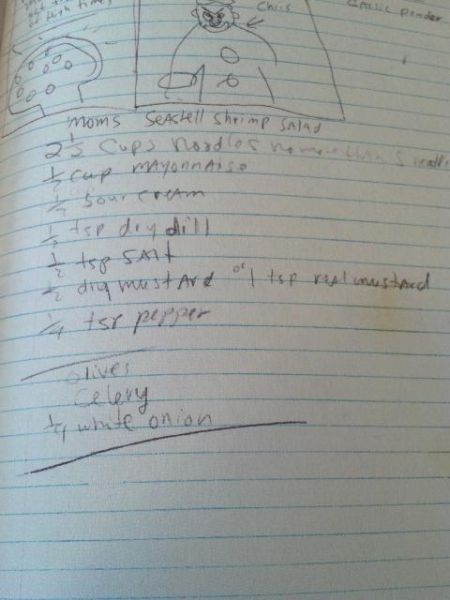 Chris
Garlic powder
Moms Seashell Shrimp Salad
2 1/2 Cups Noodles no more than 5
1/2 cup mayonnaise
1/2 sour cream
1/2 tsp dry dill
1/2 tsp Salt
1/2 dry mustard or 1 tsp real mustard
1/4 tsp pepper
Olives
Celery
1/4 white onion